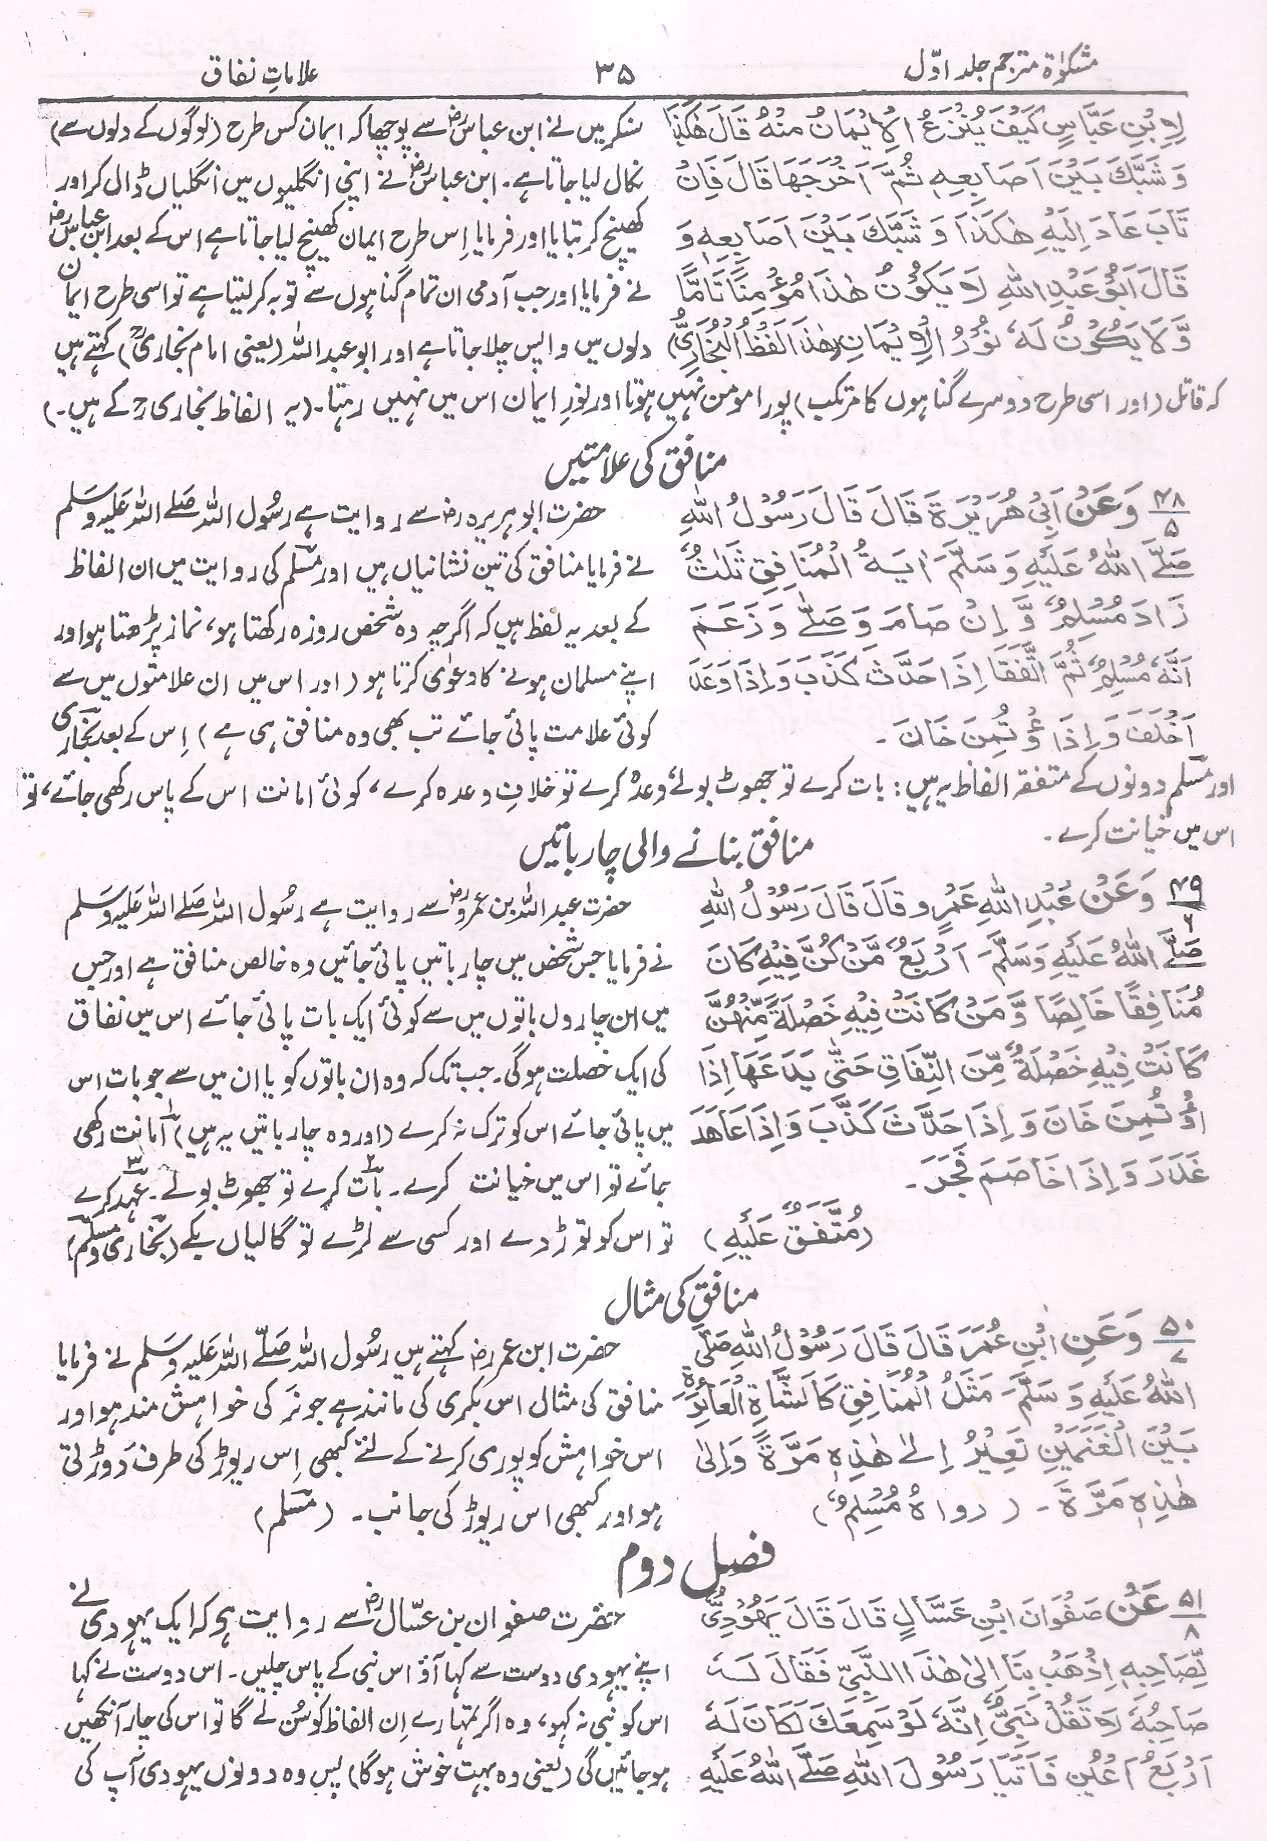 مشکوٰۃ مترجم جلد اوّل
۳۵
علاماتِ نفاق
لِابْنِ عَبَّاسٍ كَيْفَ يُنْزَعُ الْاِيْمَانُ مِنْهُ قَالَ هٰكَذَا
وَشَبَّكَ بَيْنَ اَصَابِعِهٖ ثُمَّ اَخْرَجَهَا قَالَ فَاِنْ
تَابَ عَادَ اِلَيْهِ هٰكَذَا وَشَبَّكَ بَيْنَ اَصَابِعِهٖ وَ
قَالَ اَبُوْ عَبْدِ اللهِ لَا يَكُوْنُ هٰذَا مُؤْمِنًا تَامًّا
وَّلَا يَكُوْنُ لَهٗ نُوْرُ الْاِيْمَانِ (هٰذَا لَفْظُ الْبُخَارِيِّ)
سنکر میں نے ابن عباسؓ سے پوچھا کہ ایمان کس طرح (لوگوں کے دلوں سے)
نکال لیا جاتا ہے۔ ابن عباسؓ نے اپنی انگلیوں میں انگلیاں ڈال کر اور
کھینچ کر بتایا اور فرمایا اِس طرح ایمان کھینچ لیا جاتا ہے اس کے بعد ابن عباسؓ
نے فرمایا اور جب آدمی ان تمام گناہوں سے توبہ کر لیتا ہے تو اسی طرح ایمان
دلوں میں واپس چلا جاتا ہے اور ابو عبد اللہ (یعنی امام بخاریؒ) کہتے ہیں
کہ قاتل (اور اسی طرح دوسرے گناہوں کا مرتکب) پورا مومن نہیں ہوتا اور نورِ ایمان اس میں نہیں رہتا۔ (یہ الفاظ بخاریؒ کے ہیں۔)
منافق کی علامتیں
۴۸/۵ وَعَنْ اَبِيْ هُرَيْرَةَ قَالَ قَالَ رَسُوْلُ اللهِ
صَلَّے اللهُ عَلَيْهِ وَسَلَّمَ اٰيَةُ الْمُنَافِقِ ثَلٰثٌ
زَادَ مُسْلِمٌ وَّ اِنْ صَامَ وَصَلّٰى وَزَعَمَ
اَنَّهٗ مُسْلِمٌ ثُمَّ اتَّفَقَا اِذَا حَدَّثَ كَذَبَ وَاِذَا وَعَدَ
اَخْلَفَ وَاِذَا ؤْتُمِنَ خَانَ۔
حضرت ابو ہریرہؓ سے روایت ہے رسُول اللہ صَلے اللہ عَلیہ وسَلم
نے فرمایا منافق کی تین نشانیاں ہیں اور مسلم کی روایت میں ان الفاظ
کے بعد یہ لفظ ہیں کہ اگرچہ وہ شخص روزہ رکھتا ہو، نماز پڑھتا ہو اور
اپنے مسلمان ہونے کا دعوٰی کرتا ہو (اور اس میں ان علامتوں میں سے
کوئی علامت پائی جائے تب بھی وہ منافق ہی ہے) اِس کے بعد بخاری
اور مسلم دونوں کے متفقہ الفاظ یہ ہیں: بات کرے تو جھوٹ بولے، وعدہ کرے تو خلافِ وعدہ کرے، کوئی امانت اس کے پاس رکھی جائے، تو
اس میں خیانت کرے۔
منافق بنانے والی چار باتیں
۴۹/۶ وَعَنْ عَبْدِ اللهِ عَمْرٍو قَالَ قَالَ رَسُوْلُ اللهِ
صَلَّے اللهُ عَلَيْهِ وَسَلَّمَ اَرْبَعٌ مَّنْ كُنَّ فِيْهِ كَانَ
مُنَافِقًا خَالِصًا وَّمَنْ كَانَتْ فِيْهِ خَصْلَةٌ مِّنْهُنَّ
كَانَتْ فِيْهِ خَصْلَةٌ مِّنَ النِّفَاقِ حَتّٰى يَدَعَهَا اِذَا
اؤْتُمِنَ خَانَ وَاِذَا حَدَّثَ كَذَبَ وَاِذَا عَاهَدَ
غَدَرَ وَاِذَا خَاصَمَ فَجَرَ۔
(مُتَّفَقٌ عَلَيْهِ)
حضرت عبداللہ بن عمروؓ سے روایت ہے رسُول اللہ صَلے اللہ عَلیہ وسَلم
نے فرمایا جس شخص میں چار باتیں پائی جائیں وہ خالص منافق ہے اور جس
میں ان چاروں باتوں میں سے کوئی ایک بات پائی جائے اس میں نفاق
کی ایک خصلت ہوگی۔ جب تک کہ وہ ان باتوں کو یا ان میں سے جو بات اس
میں پائی جائے اس کو ترک نہ کرے (اور وہ چار باتیں یہ ہیں) ۱؎ امانت رکھی
جائے تو اس میں خیانت کرے۔ ۲؎ بات کرے تو جھوٹ بولے۔ ۳؎ عہد کرے
تو اس کو توڑ دے اور کسی سے لڑے تو گالیاں بکے (بخاری و مسلم)
منافق کی مثال
۵۰/۷ وَعَنِ ابْنِ عُمَرَ قَالَ قَالَ رَسُوْلُ اللهِ صَلَّى
اللهُ عَلَيْهِ وَسَلَّمَ مَثَلُ الْمُنَافِقِ كَالشَّاةِ الْعَائِرَةِ
بَيْنَ الْغَنَمَيْنِ تَعِيْرُ اِلٰے هٰذِهٖ مَرَّةً وَاِلٰى
هٰذِهٖ مَرَّةً۔ (رواهُ مُسْلِمٌ)
حضرت ابن عمرؓ کہتے ہیں رسُول اللہ صَلّے اللہ عَلیہ وسَلم نے فرمایا
منافق کی مثال اس بکری کی مانند ہے جو نر کی خواہش مند ہو اور
اس خواہش کو پوری کرنے کے لئے کبھی اِس ریوڑ کی طرف دَوڑتی
ہو اور کبھی اس ریوڑ کی جانب۔ (مسلم)
فصل دوم
۵۱/۸ عَنْ صَفْوَانَ ابْنِ عَسَّالٍ قَالَ قَالَ يَهُوْدِيٌّ
لِّصَاحِبِهٖ اِذْهَبْ بِنَا اِلٰى هٰذَا النَّبِيِّ فَقَالَ لَهٗ
صَاحِبُهٗ لَا تَقُلْ نَبِيٌّ اِنَّهٗ لَوْ سَمِعَكَ لَكَانَ لَهٗ
اَرْبَعُ اَعْيُنٍ فَاَتَيَا رَسُوْلَ اللهِ صَلَّے اللهُ عَلَيْهِ
حضرت صفوان بن عسّالؓ سے روایت ہے کہ ایک یہودی نے
اپنے یہودی دوست سے کہا آؤ اس نبی کے پاس چلیں۔ اس دوست نے کہا
اس کو نبی نہ کہو، وہ اگر تمہارے اِن الفاظ کو سُن لے گا تو اس کی چار آنکھیں
ہو جائیں گی (یعنی وہ بہت خوش ہوگا) پس وہ دونوں یہودی آپ کی